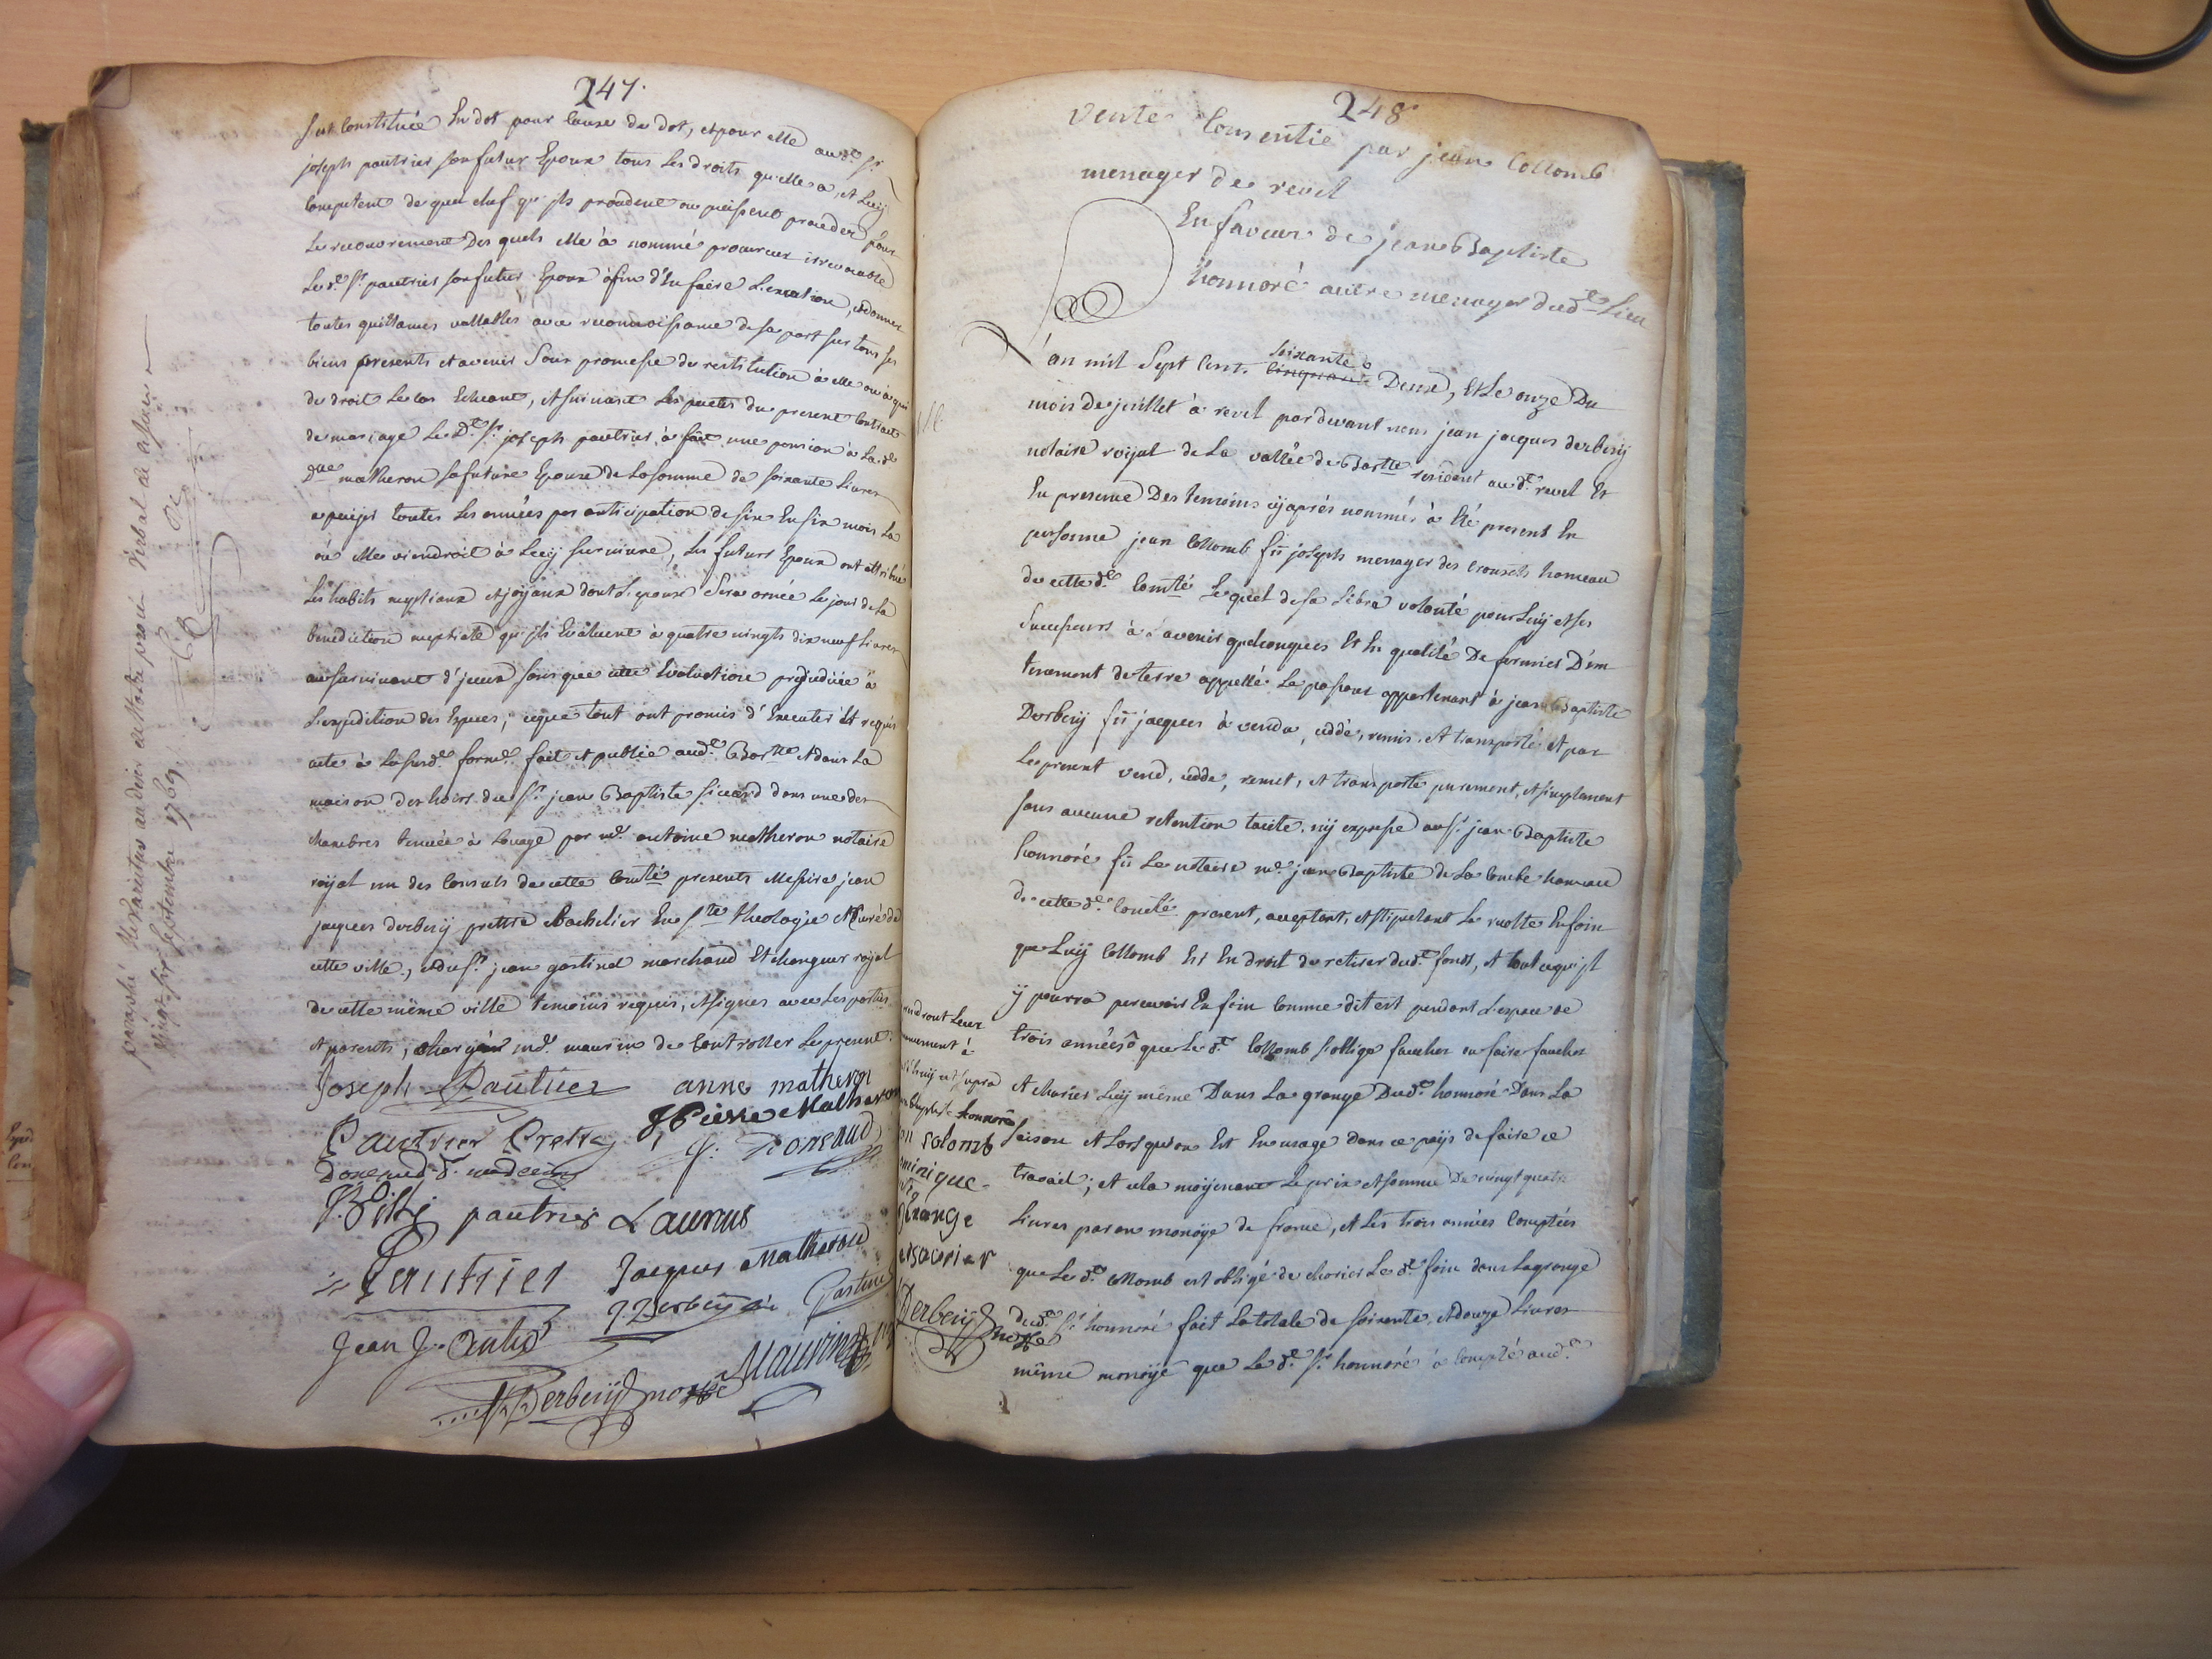 247.
s'est Constituée En dot pour Cause de dot, et pour elle aud.t Sr.
joseph pautrier son futur Epoux tous les droits qu'elle a, et Luij
Competent de quel chef qu'ils procedent ou puissent proceder pour
Le recouvrement Des quels elle a nommé procureur irrevocable
Led.t Sr. pautrier son futur Epoux afin d'En faire L'exaction, et donner
toutes quittances vallables avec reconnoissance de sa part sur tous ses
biens presents et avenir Sous promesse de restitution à elle ou à qui
de droit Le Cas Echeant, et suivant Les pactes du present Contract
de mariage Le D.t Sr. joseph pautrier a fait une pension à La d.e
D.lle matheron sa future Epouse de La somme de soixante Livres
a paijer toutes Les années par anticipation de six En six mois La
où elle viendroit à Luij survivre, Les futurs Epoux ont attribué
Les habits nuptiaux et joijaux dont L'epouse Sera ornée Le jour de La
benediction nuptiale qu'ils Evaluent à quatre vingts dix neuf Livres
au survivant d'jceux sans que cette Evaluation prejudicie à
L'expedition des Especes; ce que tout ont promis d'Executer Et requis
acte à La susd.e forme fait et publié aud.t Bar.tte et dans La
maison des hoirs du Sr. jean Baptiste sicard dans une des
chambres tenuée à Louage par m.e antoine matheron notaire
roijal un des Consuls de cette Com.té presents Messire jean
jacques derbezij prettre Bachelier En S.te theologie et Curé de
cette ville, et du Sr. jean gastinel marchand Et changeur roijal
de cette même ville temoins requis, et signes avec Les parties
et parents, chargéant m.e maurin de Controller Le present.
Joseph Pautrier anne matheron
Pautrier Prettre J Pierre Matheron
Donneaud d. medecin J. Donneaud
pautrier Laurens
Pautrier Jacques Matheron
Jean J. J. Derbezij Curé Gastinel
Derbezij no.re Maurin
248
vente Consentie par jean Collomb
menager de revel
En faveur de jean Baptiste
honnoré autre menager dud.t Lieu
L'an mil Sept Cent. soixante Deux, Et Le onze Du
mois de juillet à revel pardevant nous jean jacques derbezij
notaire roijal de La vallée de Bar.tte resident au d.t revel Et
En presence Des temoins cij après nommés à Eté present En
personne jean Collomb fû joseph menager des Crouzets hameau
de cette d.e Com.té Le quel de sa Libre volonté pour Luij et ses
Successeurs à L'avenir quelconques Et En qualité De fermier D'un
tenement de terre appellé appartenant à jean Baptiste
Derbezij fû jacques à vendu, cedde, remis, et transporté et par
Le present vend, cedde, remet, et transporte purement, et simplement
sans aucune retention tacite, nij expresse au Sr. jean Baptiste
honnoré fû Le notaire m.e jean Baptiste de La Combe hameau
de cette d.e Com.té present, acceptant, et stipulant La recolte En foin
que Luij Collomb Est En droit de retirer dud.t fonds, et tout ce qu'jl
ij pourra percevoir En foin Comme dit est pendant L'espace de
trois années que Le d.t Collomb s'oblige faucher ou faire faucher
et charier Luij même Dans La grange Dud.t honnoré Dans La
saison et Lorsqu'on Est En usage dans ce paijs de faire ce
travail; et cela moijenant Le prix et somme De vingt quatre
Livres par an monoije de france, et Les trois années Comptées
que Le d.t Collomb est obligé de charier Le d.t foin dans La grange
dud.t Sr. honnoré fait La totale de soixante, et douze Livres
même monoije que Le d.t Sr. honnoré à Compté aud.t